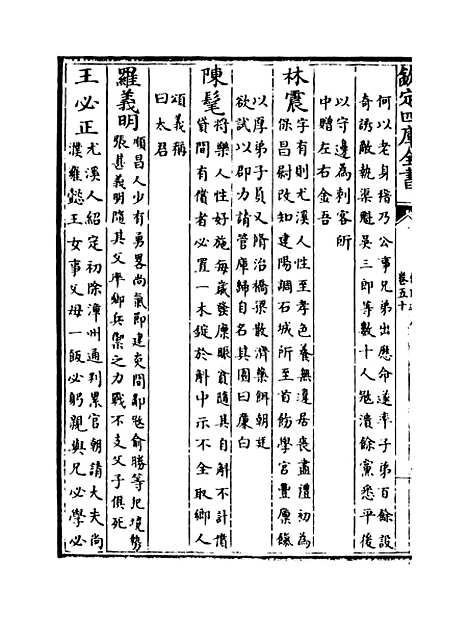 欽定四庫全書
卷五十
何以老身稽乃公事兄弟出應命遂率子弟百餘設
奇誘敵執渠魁吳三郎等數十人賊潰餘黨悉平後
以守邊為刺客所
中贈左右金吾
林震
字有則尤溪人性至孝色養無違居喪盡禮初為
保昌尉改知建陽調石城所至首飭學宮豐廩餼
以厚弟子員又脩治橋梁數濟藥餌朝廷
欲試以郡力請管庫歸自名其園曰廉白
陳髦
將樂人性好施每歲發廩賑貧隨其自斛不計借
貸間有償者必置一木錠於斛中示不全取鄉人
頌義稱
曰太君
羅義明
順昌人少有勇畧尚氣節建炎間鄰冦俞勝等犯境勢
張甚義明隨其父率鄉兵禦之力戰不支父子俱死
王必正
尤溪人紹定初除漳州通判累官朝請大夫尚
濮雍懿王女事父母一飯必躬親與兄必學必